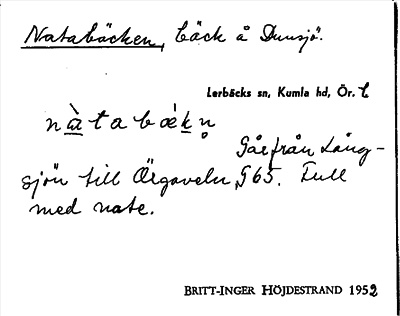 Natabäcken, bäck å Dunsjö.
Lerbäcks sn, Kumla hd, Ör. l
nàtabǽkn̥
Går från Lång-
sjön till Örgaveln, 965. Full
med nate.
BRITT-INGER HÖJDESTRAND 1952